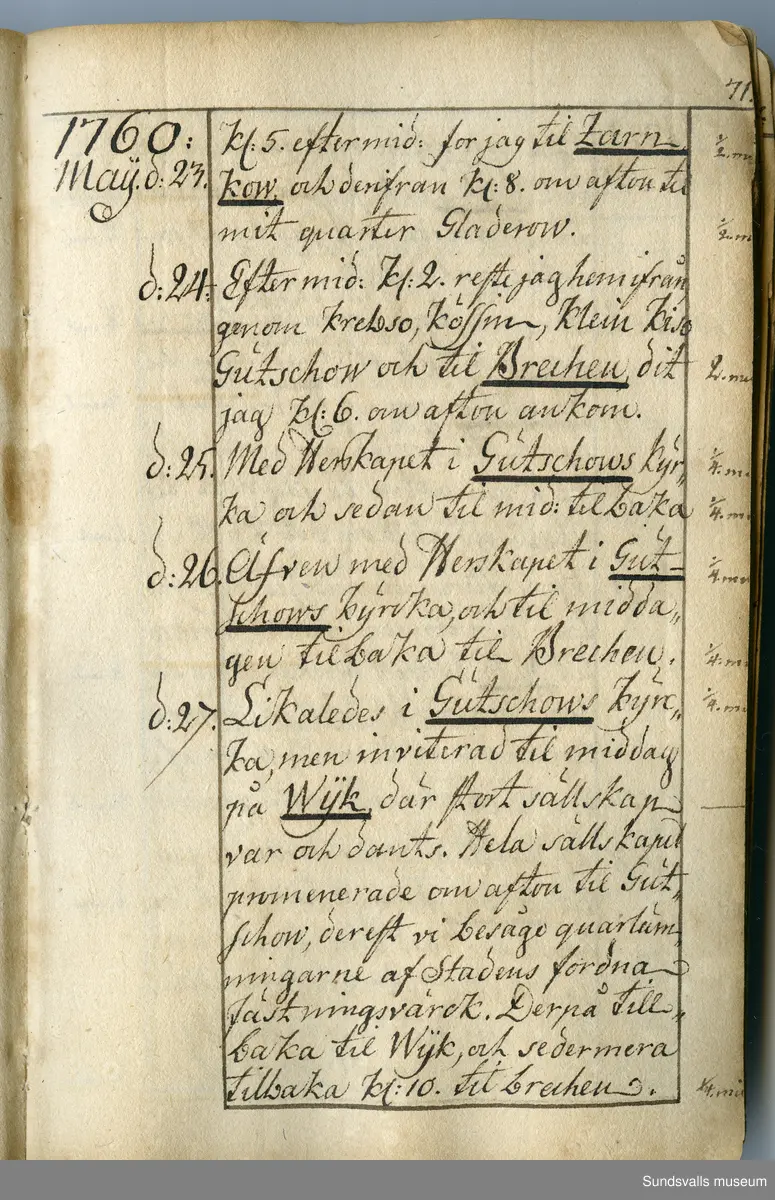 71.
1760:
Maÿ. d: 23. Kl: 5. eftermid: for jag til Zarn
kow, och derifran Kl: 8. om afton til
mit quarter Gladerow.
d: 24: Eftermid: Kl: 2. reste jag hemifrån
genom Krebso, Kössin, Klein Kiso
Gütschow och til Brechen, dit
jag Kl: 6. om afton ankom.
d: 25. Med Herskapet i Gütschows kÿr„
ka och sedan til mid: tilbaka
d: 26. Äfven med Herskapet i Güt-
schows kÿrcka, och til midda„
gen tilbaka til Brechen.
d: 27. Likaledes i Gütschows kÿrc„
ka, men inviterad til middag
på Wÿk, där stort sällskap
var och dants. Hela sällskapet
promenerade om afton til Güt„
schow, derest vi besåge quarläm„
ningarne af Stadens fordna
fästningsvärck. Derpå till„
baka til Wÿk, och sedermera
tilbaka Kl: 10. til brechen.
1/2. mi
1/2. m
2. mi
1/4. m.
1/4. m
1/4. mi
1/4. m
1/4. mi
1/4. mil
Sundsvalls museum